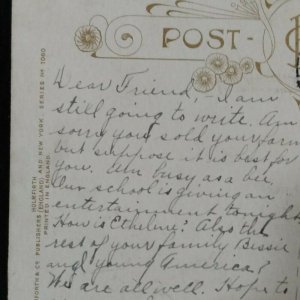 POST-
Dear Friend, - I am
still going to write. Am
sorry you sold your farm
but suppose it is best for
you. Am busy as a bee.
Our school is giving an
entertainment tonight
How is Etheline? Also the
rest of your family Bessie
and young America?
We are all well. Hope to
PUBLISHERS (ENGLAND) AND NEW YORK. SERIES Nº 1060
PRINTED IN ENGLAND.